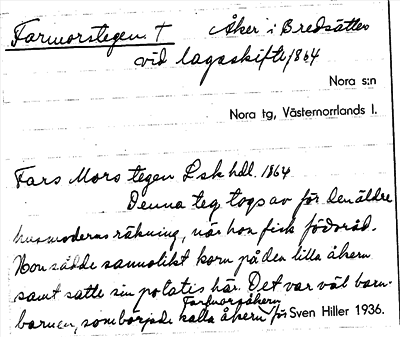 Farmorstegen. T Åker i Bredsätter
vid lagaskifte 1864
Nora s:n
Nora tg, Västernorrlands l.
Fars Mors tegen Lsk hdl. 1864
Denna teg togs av för den äldre
husmoderns räkning, när hon fick födoråd.
Hon sådde sannolikt korn på den lilla åkern
samt satte sin potatis här. Det var väl barn-
Farmorsåkern
barnen, som började kalla åkern för Sven Hiller 1936.